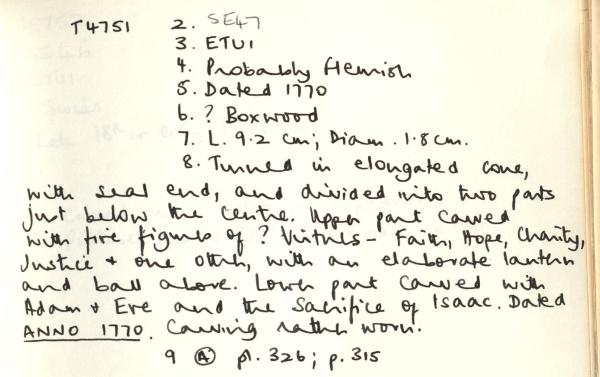 T4751 2. SE47
3. ETUI
4. Probably Flemish
5. Dated 1770
6. ? Boxwood
7. L. 9.2 cm; Diam. 1.8cm.
8. Turned in elongated cone,
with seal end, and divided into two parts
just below the centre. Upper part carved
with five figures of ? Virtues - Faith, Hope, Charity,
Justice + one other, with an elaborate lantern
and ball above. Lower part carved with
Adam & Eve and the Sacrifice of Isaac. Dated
ANNO 1770. Carving rather worn.
9 (A) pl. 326; p. 315